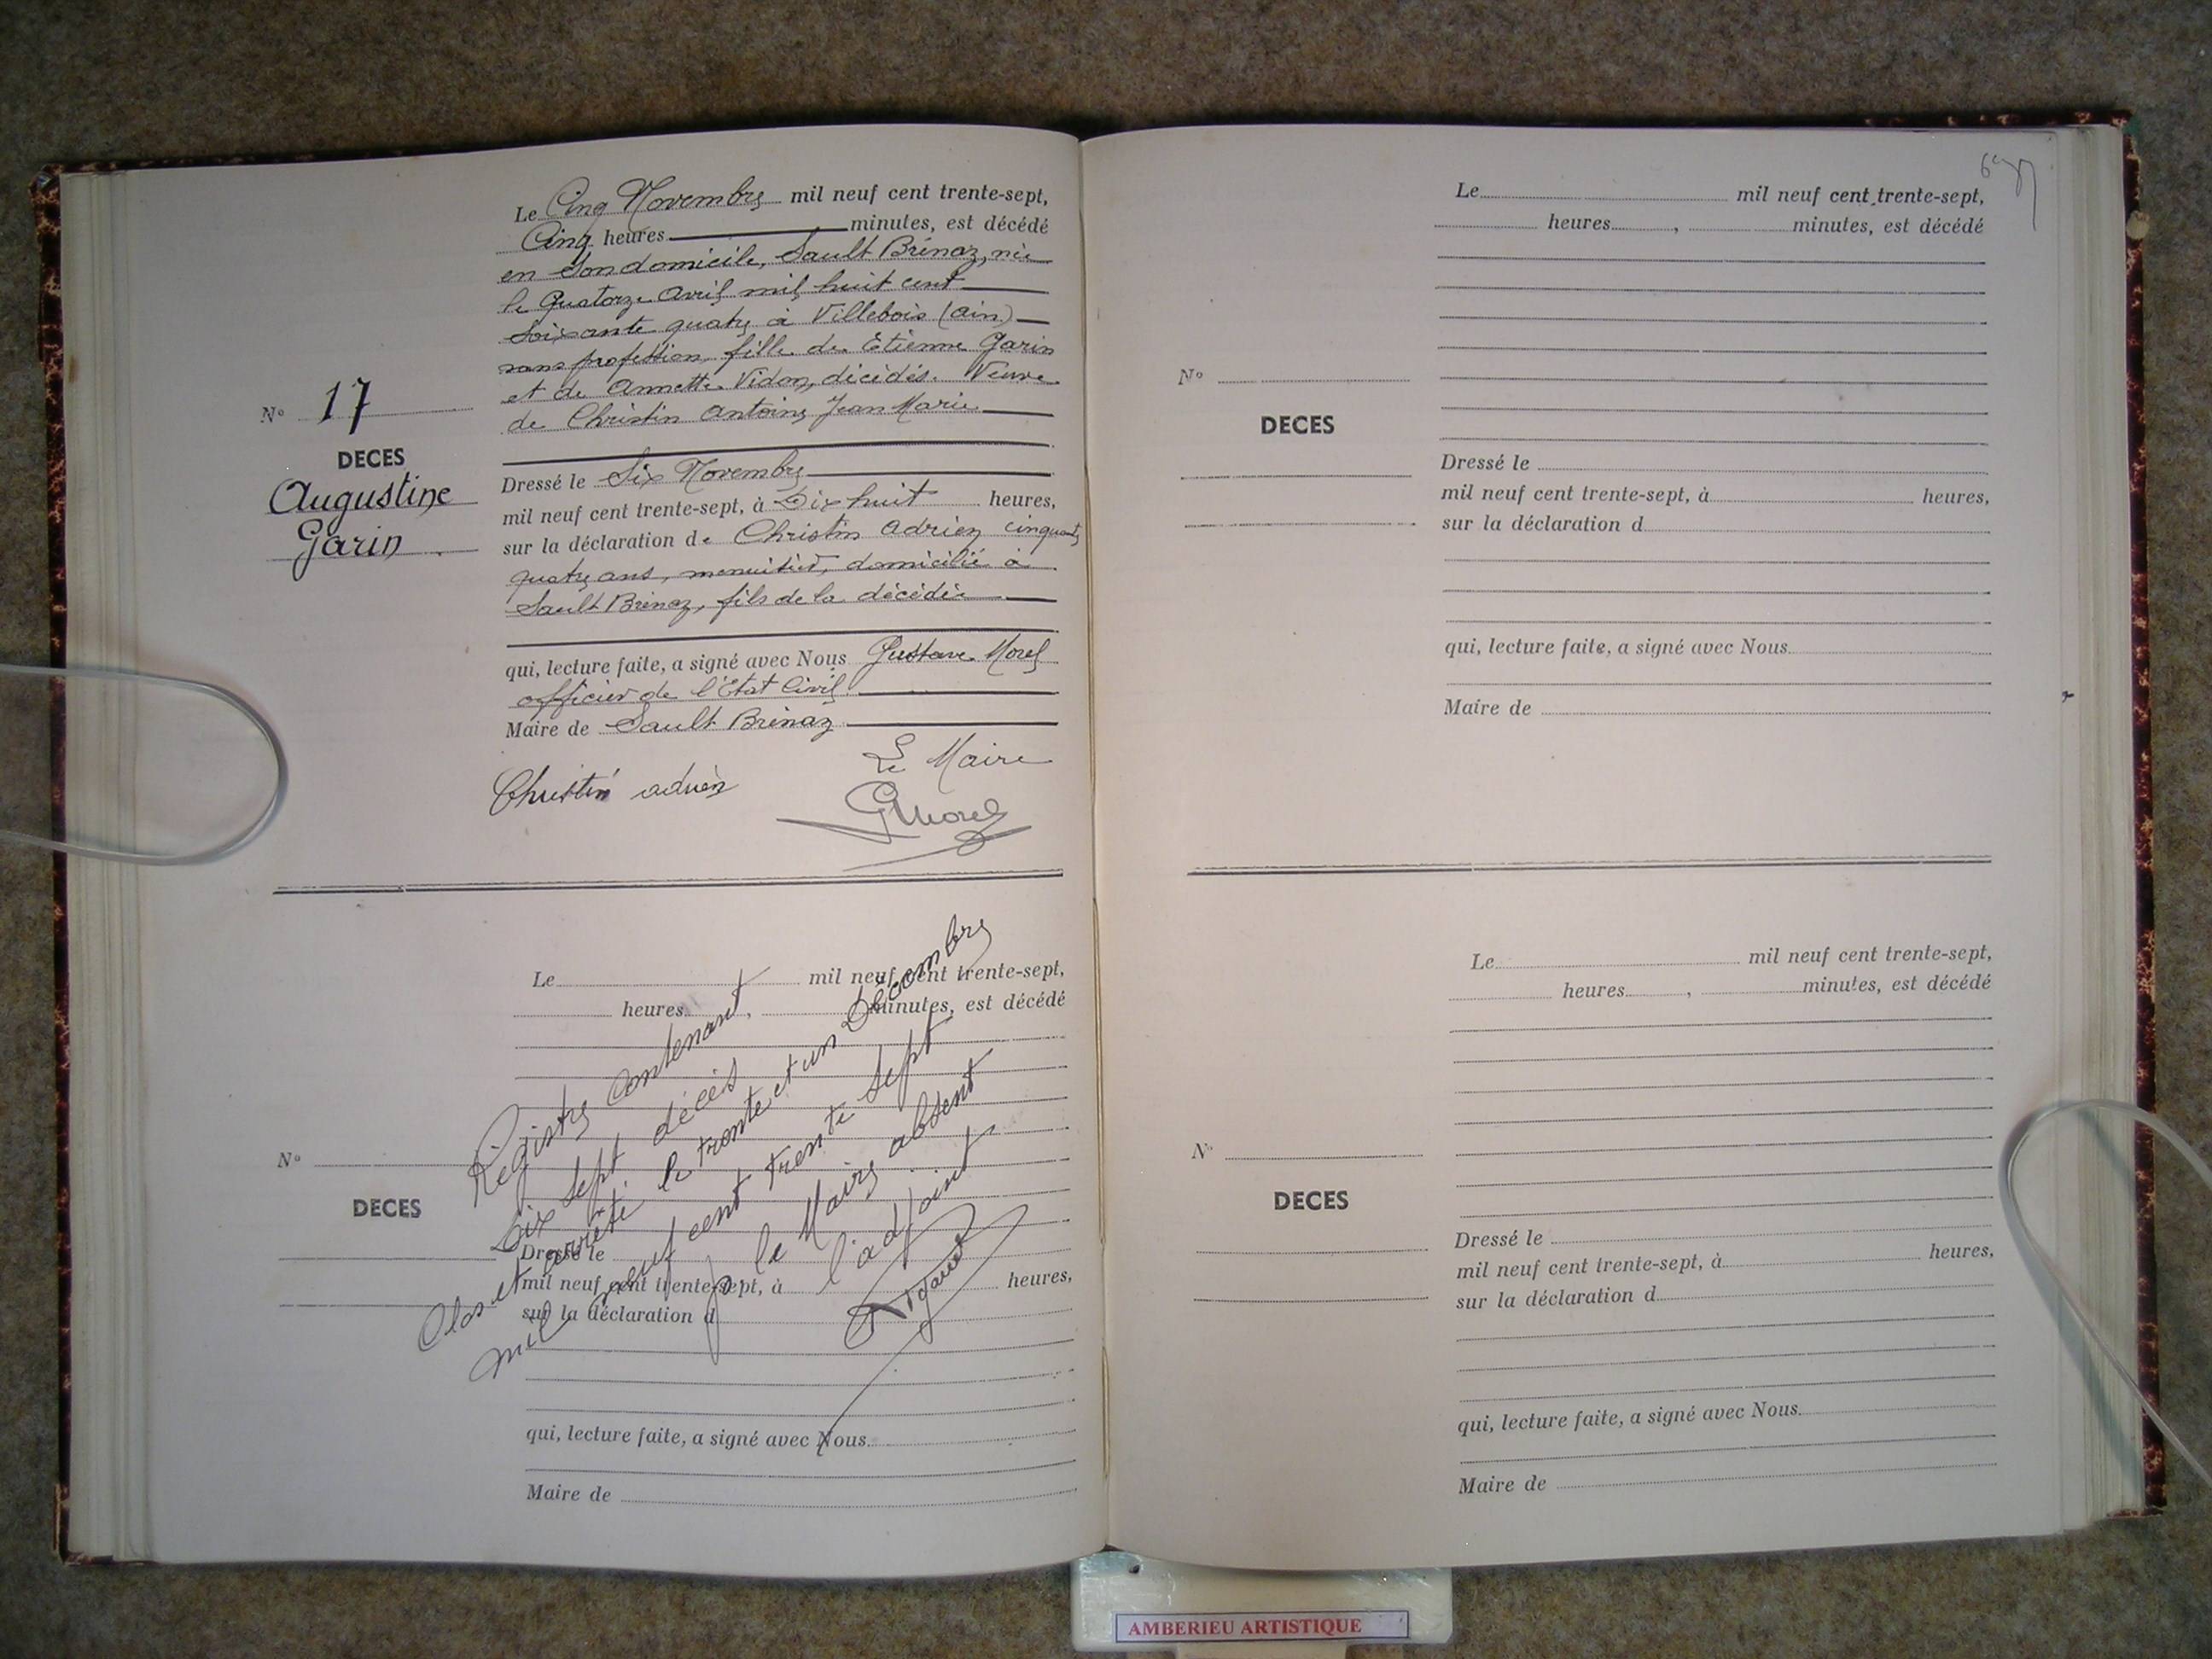 N° 17
DECES
Augustine
Garin
Le Cinq Novembre mil neuf cent trente-sept,
Cinq heures minutes, est décédé
en son domicile, Sault Brénaz, née
le Quatorze Avril mil huit cent
soixante quatre à Villebois (ain)
sans profession, fille de Etienne Garin
et de Annette Vidon, décédés. Veuve
de Christin Antoine Jean Marie
Dressé le Six Novembre
mil neuf cent trente-sept, à Dix huit heures,
sur la déclaration de Christin Adrien cinquante
quatre ans, menuisier, domicilié à
Sault Brénaz, fils de la décédée
qui, lecture faite, a signé avec Nous Gustave Morel
officier de l'Etat Civil
Maire de Sault Brénaz
Le Maire
Christin adrien
GMorel
Le mil neuf cent trente-sept,
heures , minutes, est décédé
N°
DECES
Dressé le
mil neuf cent trente-sept, à heures,
sur la déclaration d
qui, lecture faite, a signé avec Nous
Maire de
Registre Contenant
Dix sept décès
Clos et arrêté le trente et un Décembre
mil neuf cent trente sept
p le Maire absent
l'adjoint
Le mil neuf cent trente-sept,
heures , minutes, est décédé
N°
DECES
Dressé le
mil neuf cent trente-sept, à heures,
sur la déclaration d
qui, lecture faite, a signé avec Nous
Maire de
Le mil neuf cent trente-sept,
heures , minutes, est décédé
N°
DECES
Dressé le
mil neuf cent trente-sept, à heures,
sur la déclaration d
qui, lecture faite, a signé avec Nous
Maire de
AMBERIEU ARTISTIQUE